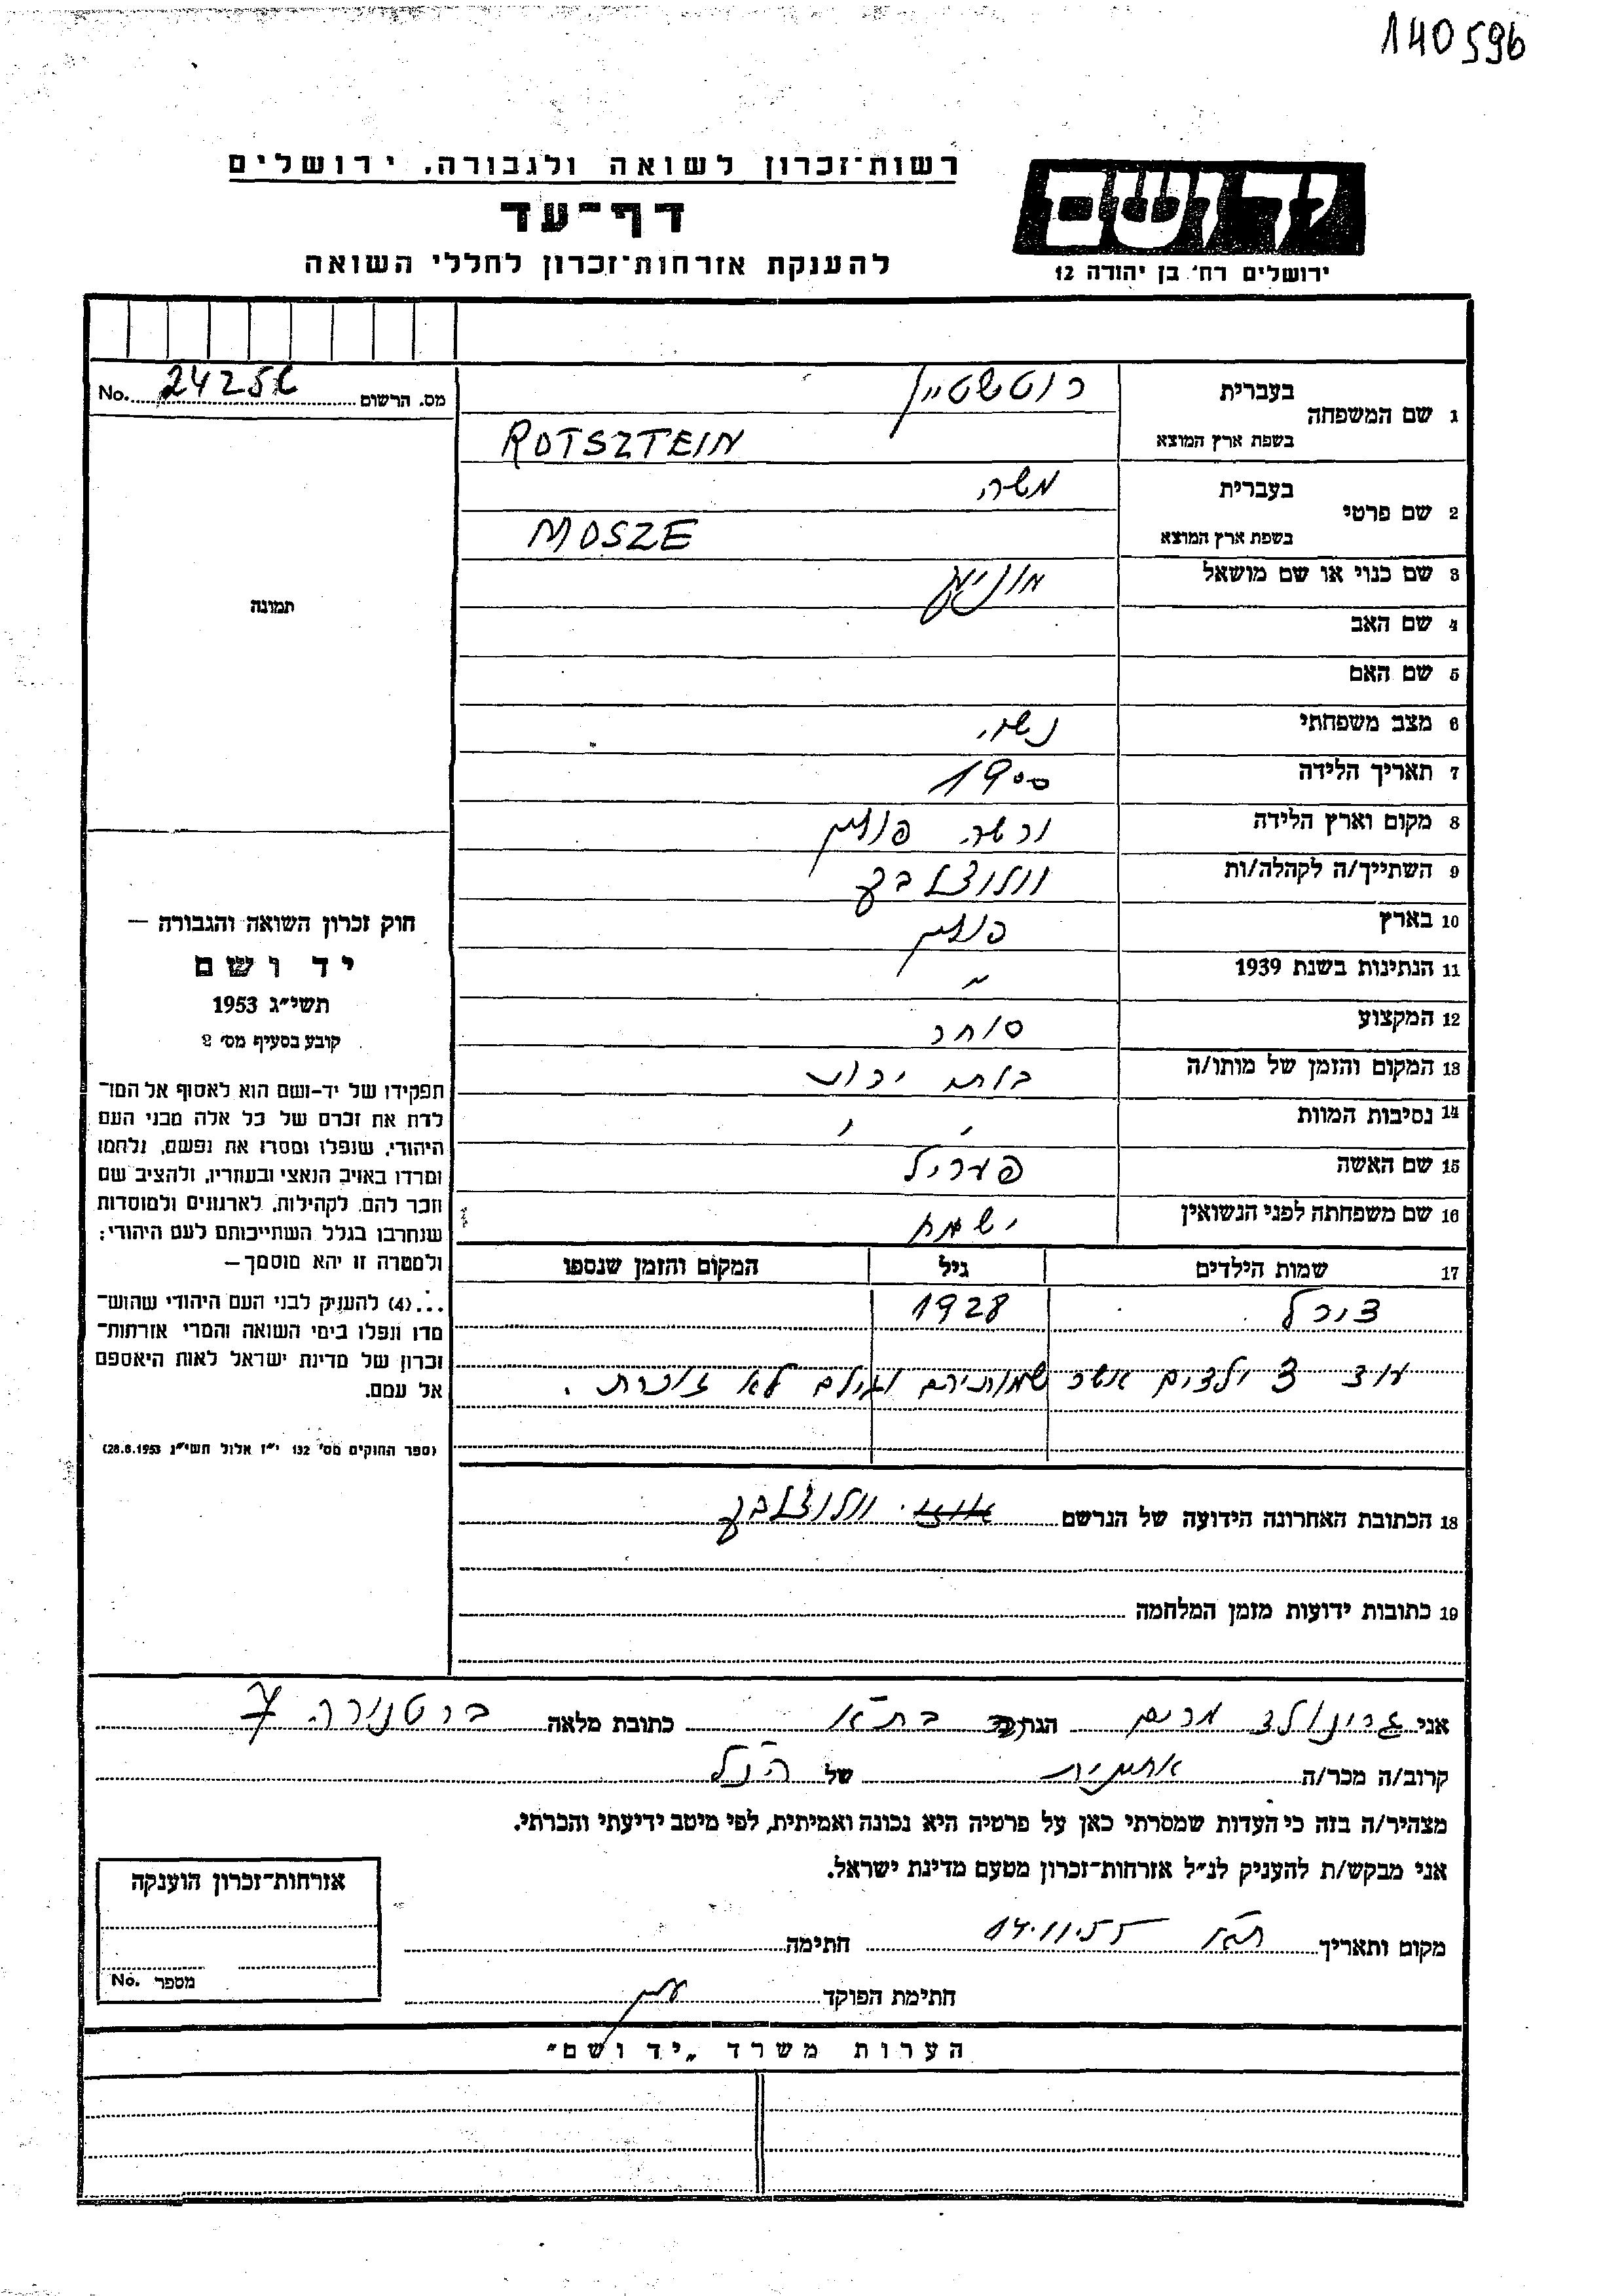 140596
יד ושם
ירושלים רח' בן יהודה 12
רשות־זכרון לשואה ולגבורה, ירושלים
דף־עד
להענקת אזרחות־זכרון לחללי השואה
מס. הרשום No. 24256
תמונה
1 שם המשפחה בעברית רוטשטיין
בשפת ארץ המוצא ROTSZTEIN
2 שם פרטי בעברית משה
בשפת ארץ המוצא MOSZE
3 שם כנוי או שם מושאל מוניעק
4 שם האב
5 שם האם
6 מצב משפחתי נשוי
7 תאריך הלידה 1900
8 מקום וארץ הלידה ורשה פולין
9 השתייך/ה לקהלה/ות
10 בארץ פולין
11 הנתינות בשנת 1939 "
12 המקצוע סוחר
13 המקום והזמן של מותו/ה בלתי ידוע
14 נסיבות המוות " "
15 שם האשה פעריל
16 שם משפחתה לפני הנשואין
17 שמות הילדים גיל המקום והזמן שנספו
1928
עוד 3 ילדים אשר שמותיהם וגילם לא זוכרת.
18 הכתובת האחרונה הידועה של הנרשם
19 כתובות ידועות מזמן המלחמה
חוק זכרון השואה והגבורה —
יד ושם
תשי"ג 1953
קובע בסעיף מס' 2
תפקידו של יד-ושם הוא לאסוף אל המו־
לדת את זכרם של כל אלה מבני העם
היהודי, שנפלו ומסרו את נפשם, נלחמו
ומרדו באויב הנאצי ובעוזריו, ולהציב שם
וזכר להם, לקהילות, לארגונים ולמוסדות
שנחרבו בגלל השתייכותם לעם היהודי;
ולמטרה זו יהא מוסמך—
...(4) להעניק לבני העם היהודי שהוש־
מדו ונפלו בימי השואה והמרי אזרחות־
זכרון של מדינת ישראל לאות היאספם
אל עמם.
(ספר החוקים מס' 132 י"ז אלול תשי"ג 28.8.1953)
אני גרינולד מרים הגרה בת"א כתובת מלאה ברטנורה 7
קרוב/ה מכר/ה אחיינית של הנ"ל
מצהיר/ה בזה כי העדות שמסרתי כאן על פרטיה היא נכונה ואמיתית, לפי מיטב ידיעתי והכרתי.
אני מבקש/ת להעניק לנ"ל אזרחות־זכרון מטעם מדינת ישראל.
מקום ותאריך ת"א 14.11.55 חתימה
חתימת הפוקד
אזרחות־זכרון הוענקה
מספר No.
הערות משרד „יד ושם"